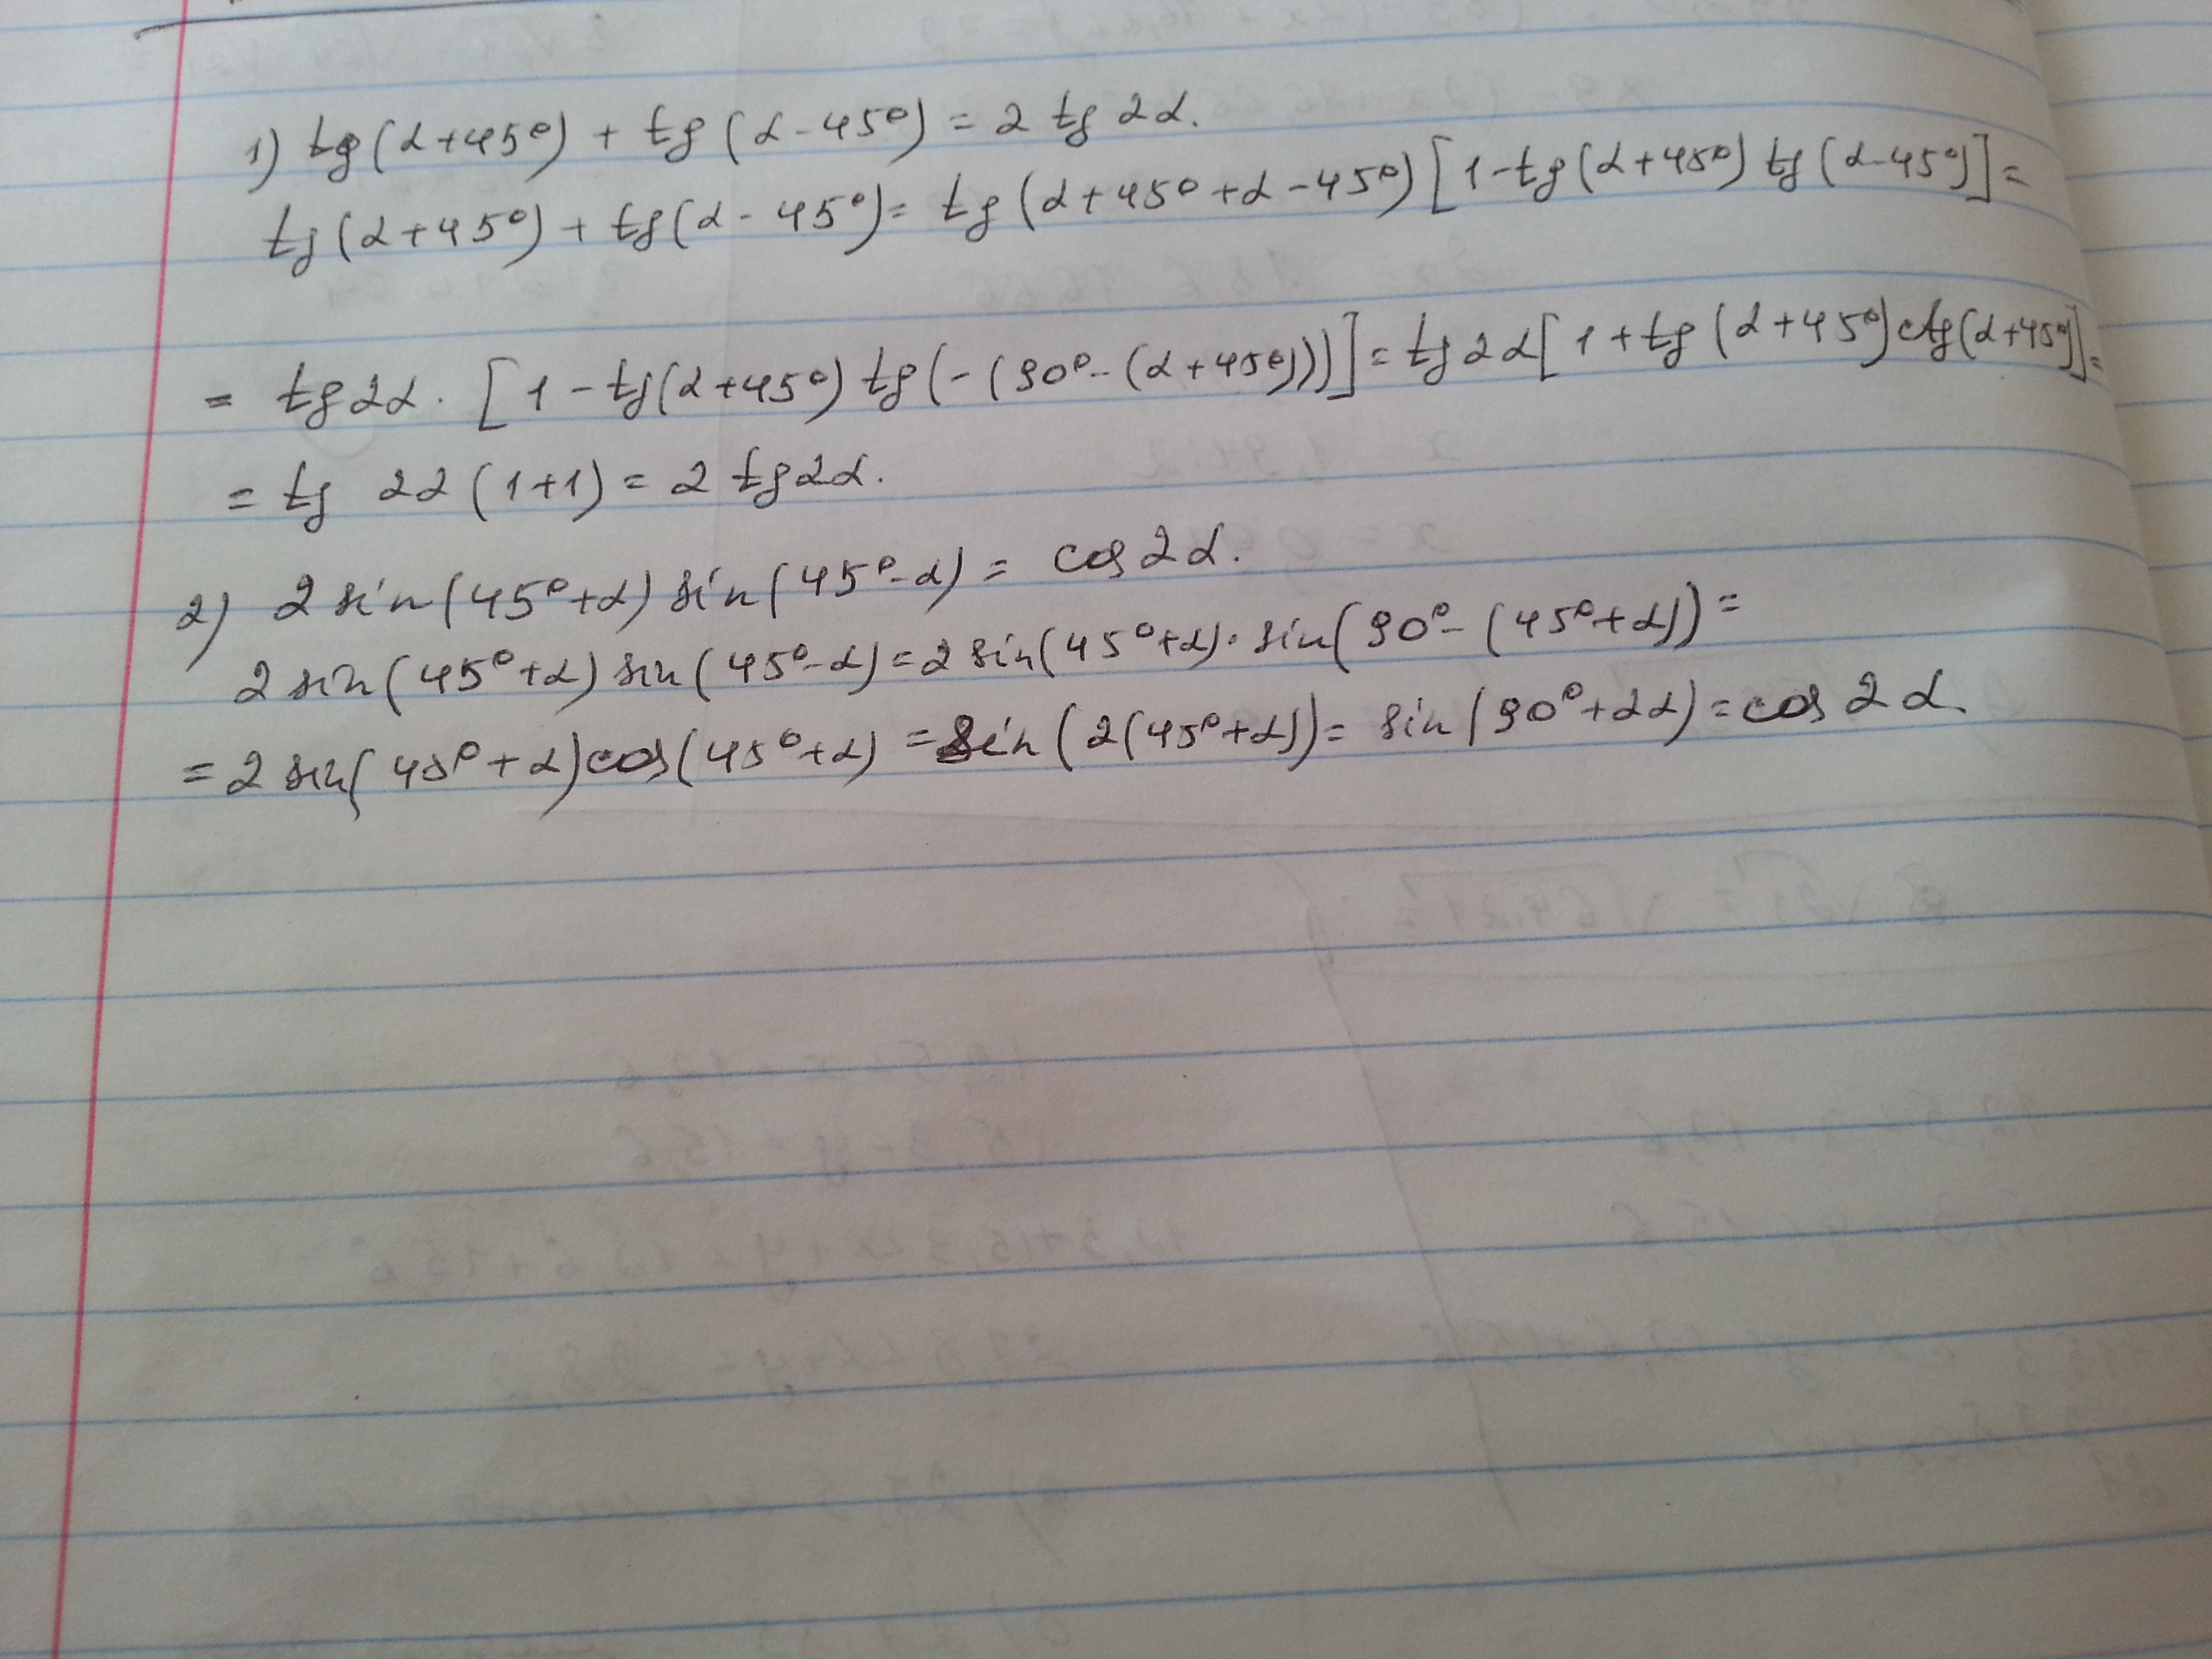 1) tg(α+45°) + tg(α-45°) = 2 tg 2α.
tg(α+45°) + tg(α-45°) = tg(α+45°+α-45°)[1-tg(α+45°) tg(α-45°)] =
= tg2α · [1-tg(α+45°) tg(-(90°-(α+45°)))] = tg2α[1+tg(α+45°)ctg(α+45°)] =
= tg 2α (1+1) = 2 tg2α.
2) 2 sin(45°+α) sin(45°-α) = cos2α.
2 sin(45°+α) sin(45°-α) = 2 sin(45°+α)·sin(90°-(45°+α)) =
= 2 sin(45°+α)cos(45°+α) = sin(2(45°+α)) = sin(90°+2α) = cos 2α.